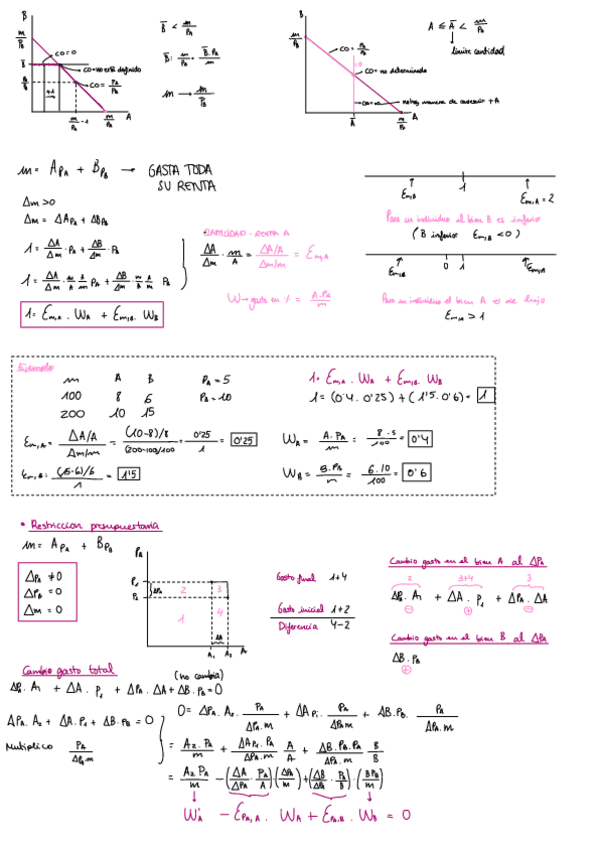 B
m/PB
B̄
CO=0
CO=no está definido
CO = PA/PB
+1
m/PA - 1
m/PA
A
B̄ < m/PB
B̄ : m/PA - B̄·PA/m
m → m/PB
B
m/PB
CO = PA/PB
CO = no determinado
CO = ∞
no hay manera de conseguir + A
Ā
m/PA
A
A ≤ Ā < m/PA
límite cantidad
m = A PA + B PB → GASTA TODA
SU RENTA
Δm > 0
Δm = ΔA PA + ΔB PB
1 = ΔA/Δm · PA + ΔB/Δm · PB
1 = ΔA/Δm · m/A · A/m PA + ΔB/Δm m/A A/m PB
1 = Em,A · WA + Em,B · WB
CANTIDAD - RENTA A
ΔA/Δm · m/A = ΔA/A / Δm/m = Em,A
W → gasto en % = A·PA/m
Em,B
1
Em,A = 2
Para un individuo el bien B es inferior
(B inferior Em,B < 0)
Em,B
0 1
Em,A
Para un individuo el bien A es de lujo
Em,A > 1
Ejemplo
m A B
100 8 6
200 10 15
PA = 5
PB = 10
1 = Em,A · WA + Em,B · WB
1 = (0'4 · 0'25) + (1'5 · 0'6) = 1
Em,A = ΔA/A / Δm/m = (10-8)/8 / (200-100)/100 = 0'25/1 = 0'25
WA = A·PA/m = 8·5/100 = 0'4
Em,B = (15-6)/6 / 1 = 1'5
WB = B·PB/m = 6·10/100 = 0'6
• Restriccion presupuestaria
m = A PA + B PB
ΔPA ≠ 0
ΔPB = 0
Δm = 0
PA
P1
P2
ΔPA
2 3
1 4
ΔA
A1 A2 A
Gasto final 1+4
Gasto inicial 1+2
Diferencia 4-2
Cambio gasto en el bien A al ΔPA
2 3+4 3
ΔPA · A1 + ΔA · P1 + ΔPA · ΔA
Cambio gasto en el bien B al ΔPA
ΔB · PB
Cambio gasto total (no cambia)
ΔPA · A1 + ΔA · P1 + ΔPA · ΔA + ΔB · PB = 0
ΔPA · A2 + ΔA · P1 + ΔB · PB = 0
Multiplico PA/ΔPA·m
0 = ΔPA · A2 · PA/ΔPA·m + ΔA P1 · PA/ΔPA m + ΔB·PB · PA/ΔPA·m
= A2·PA/m + ΔA P1·PA/ΔPA·m A/A + ΔB·PB·PA/ΔPA·m B/B
= A2 PA/m - (ΔA/ΔPA · PA/A) · (A PA/m) + (ΔB/ΔPA · PA/B) · (B PB/m)
WA - EPA,A · WA + EPA,B · WB = 0